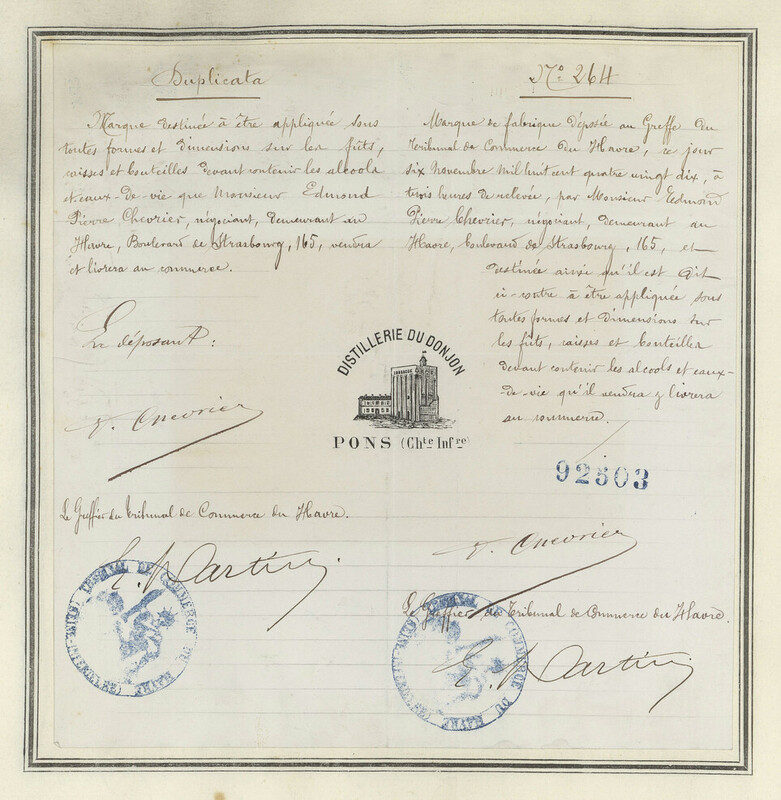 Duplicata
Marque destinée à être appliquée sous
toutes formes et dimensions sur les fûts,
caisses et bouteilles devant contenir les alcools
et eaux-de-vie que Monsieur Edmond
Pierre Chevrier, négociant, demeurant au
Havre, Boulevard de Strasbourg, 165, vendra
et livrera au commerce.
Le déposant:
E. Chevrier
Le Greffier du Tribunal de Commerce du Havre.
E. Martin
TRIBUNAL DE COMMERCE DU HAVRE (SEINE-INFÉRIEURE)
DISTILLERIE DU DONJON
PONS (Chte Infre)
No. 264
Marque de fabrique déposée au Greffe du
Tribunal de Commerce du Havre, ce jour
six novembre mil huit cent quatre vingt dix, à
trois heures de relevée, par Monsieur Edmond
Pierre Chevrier, négociant, demeurant au
Havre, boulevard de Strasbourg, 165, et
destinée ainsi qu'il est dit
ci-contre à être appliquée sous
toutes formes et dimensions sur
les fûts, caisses et bouteilles
devant contenir les alcools et eaux-
de-vie qu'il vendra & livrera
au commerce.
92503
E. Chevrier
Le Greffier du Tribunal de Commerce du Havre.
E. Martin
TRIBUNAL DE COMMERCE DU HAVRE (SEINE-INFÉRIEURE)